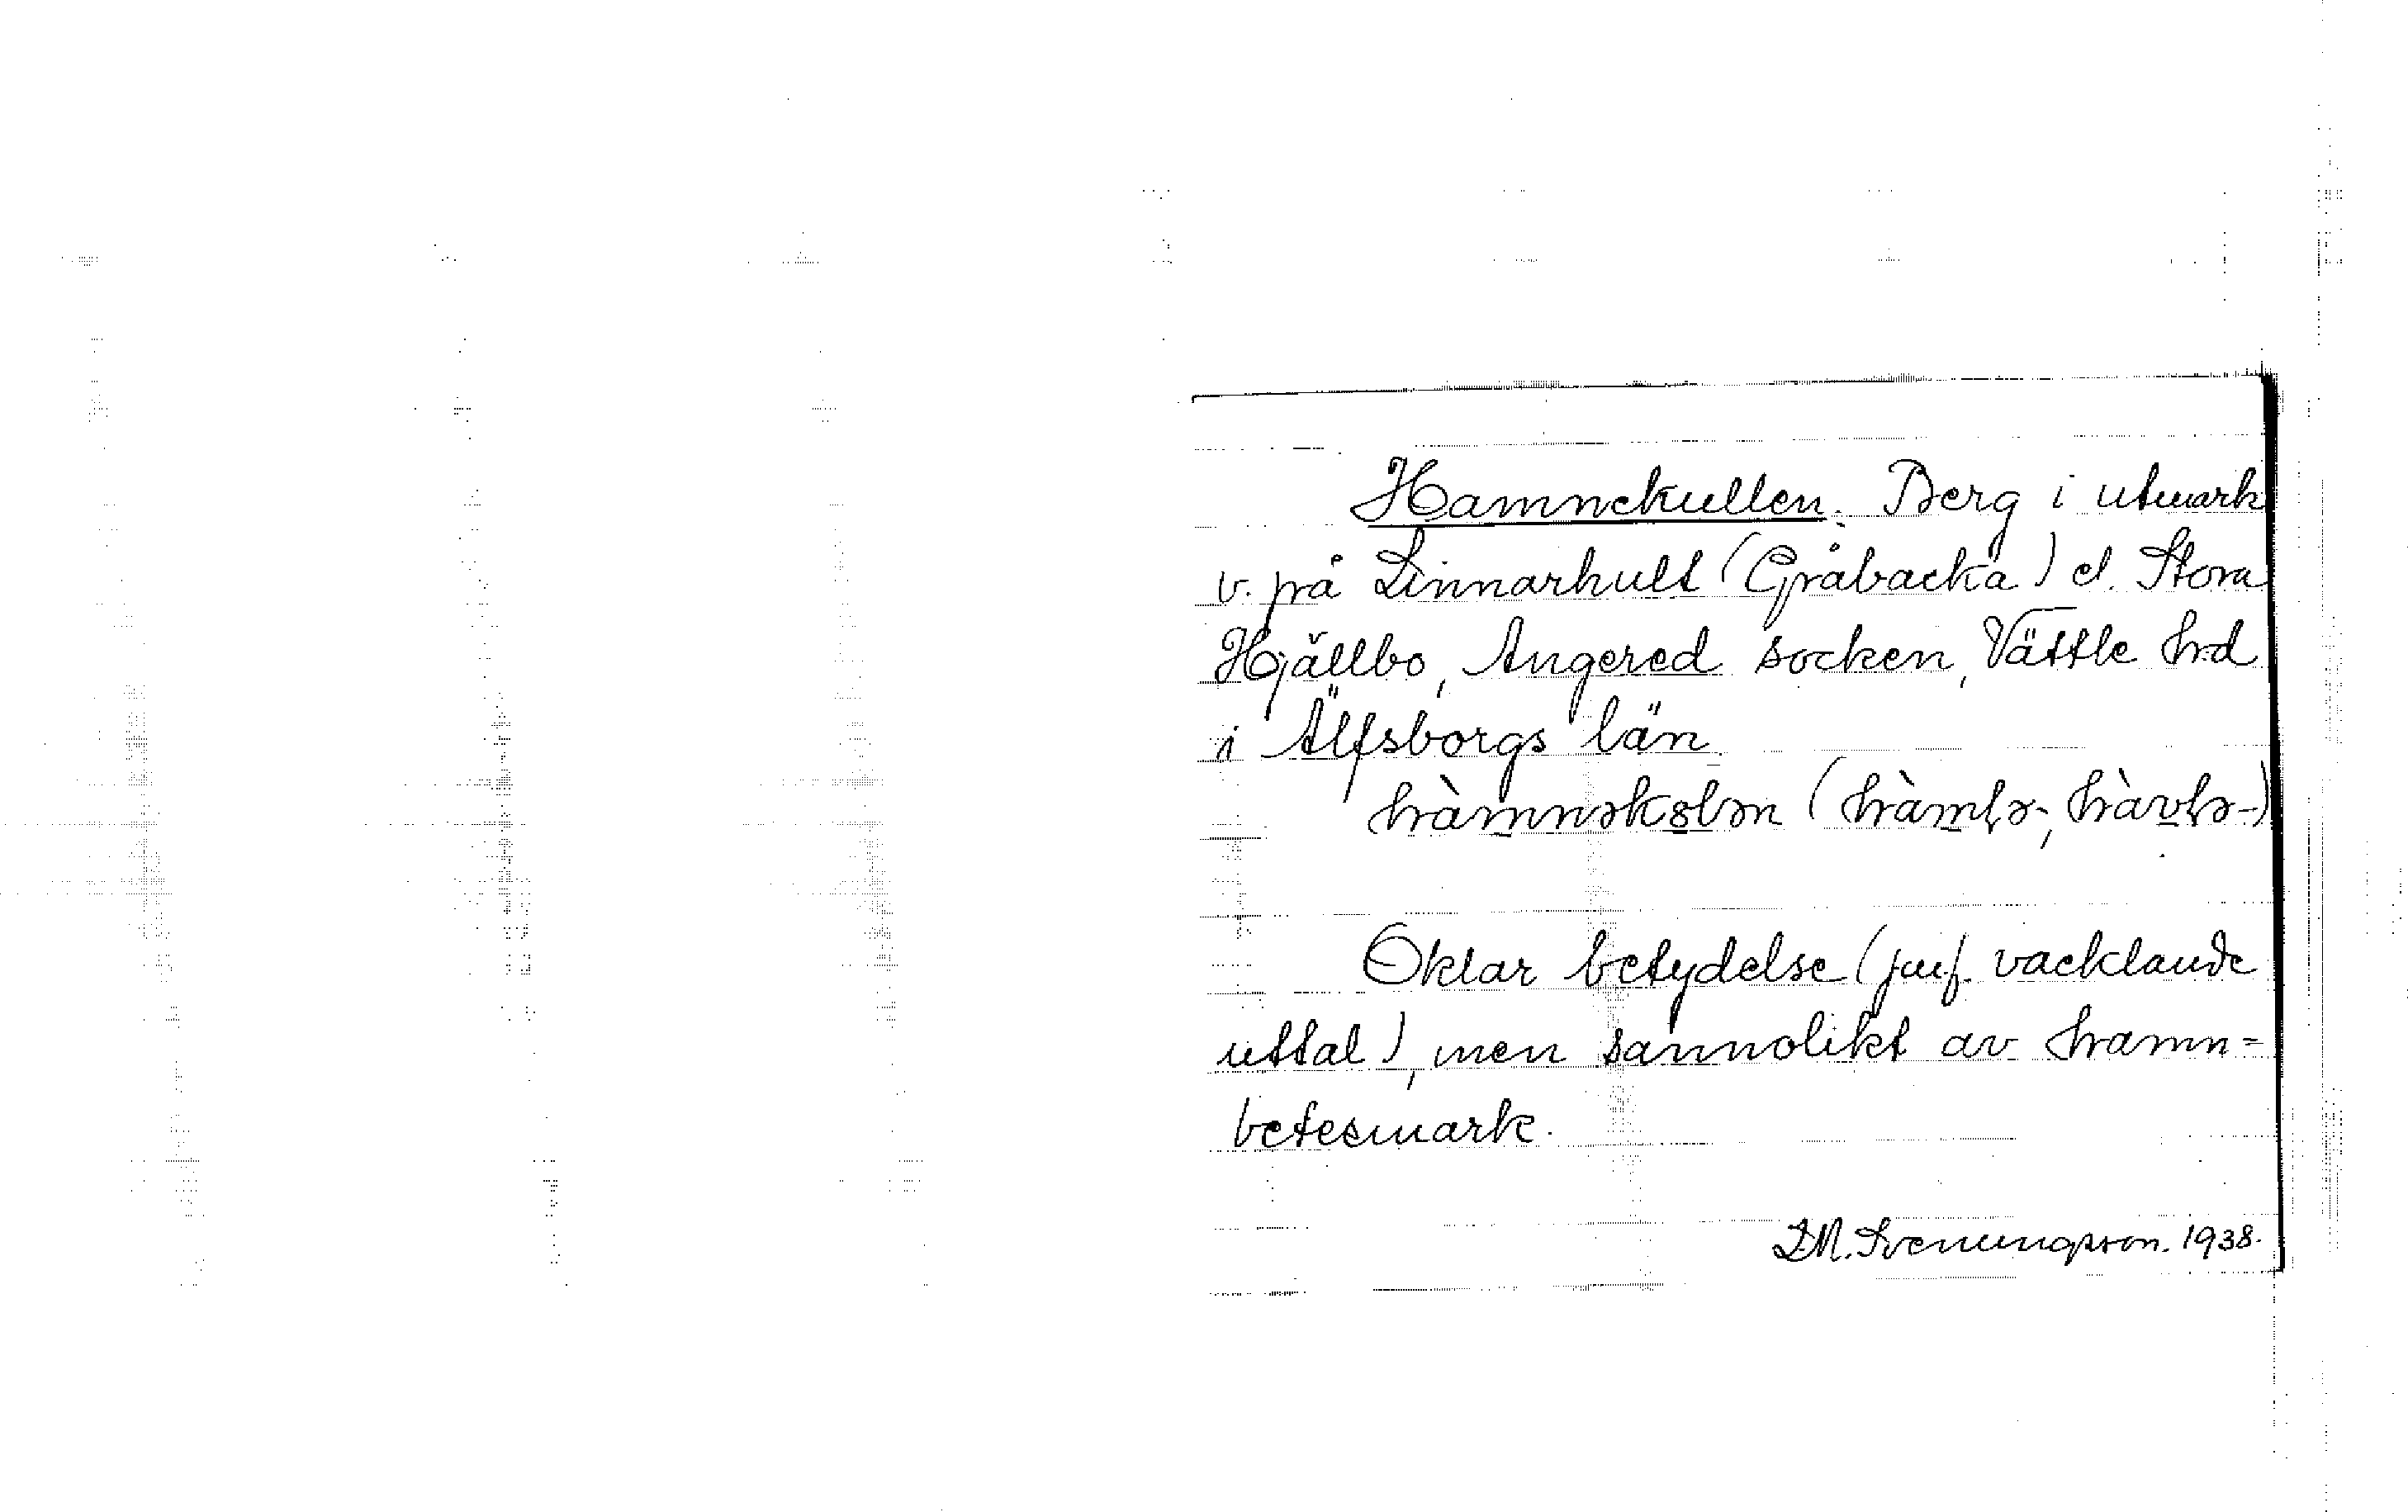 Hamnekullen. Berg i utmark
v. på Linnarhult (Gråbacka) el. Stora
Hjällbo, Angered socken, Vättle hrd
i Älfsborgs län.
hàmnəkɞlən (hàmfə-, hàvfə-)
Oklar betydelse (jmf. vacklande
uttal), men sannolikt av hamn =
betesmark.
D.M. Svenungsson. 1938.